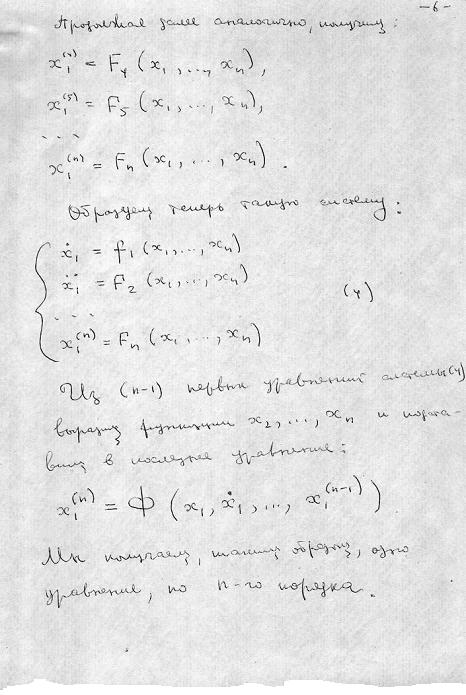 –6–
Продолжая далее аналогично, получим:
x₁⁽⁴⁾ = F₄ (x₁, ..., xₙ),
x₁⁽⁵⁾ = F₅ (x₁, ..., xₙ),
...
x₁⁽ⁿ⁾ = Fₙ (x₁, ..., xₙ).
Образуем теперь такую систему:
ẋ₁ = f₁ (x₁, ..., xₙ)
ẍ₁ = F₂ (x₁, ..., xₙ)
... (4)
x₁⁽ⁿ⁾ = Fₙ (x₁, ..., xₙ)
Из (n-1) первых уравнений системы (4)
выразим функции x₂, ..., xₙ и подста-
вим в последнее уравнение:
x₁⁽ⁿ⁾ = Φ (x₁, ẋ₁, ..., x₁⁽ⁿ⁻¹⁾)
Мы получаем, таким образом, одно
уравнение, но n-го порядка.